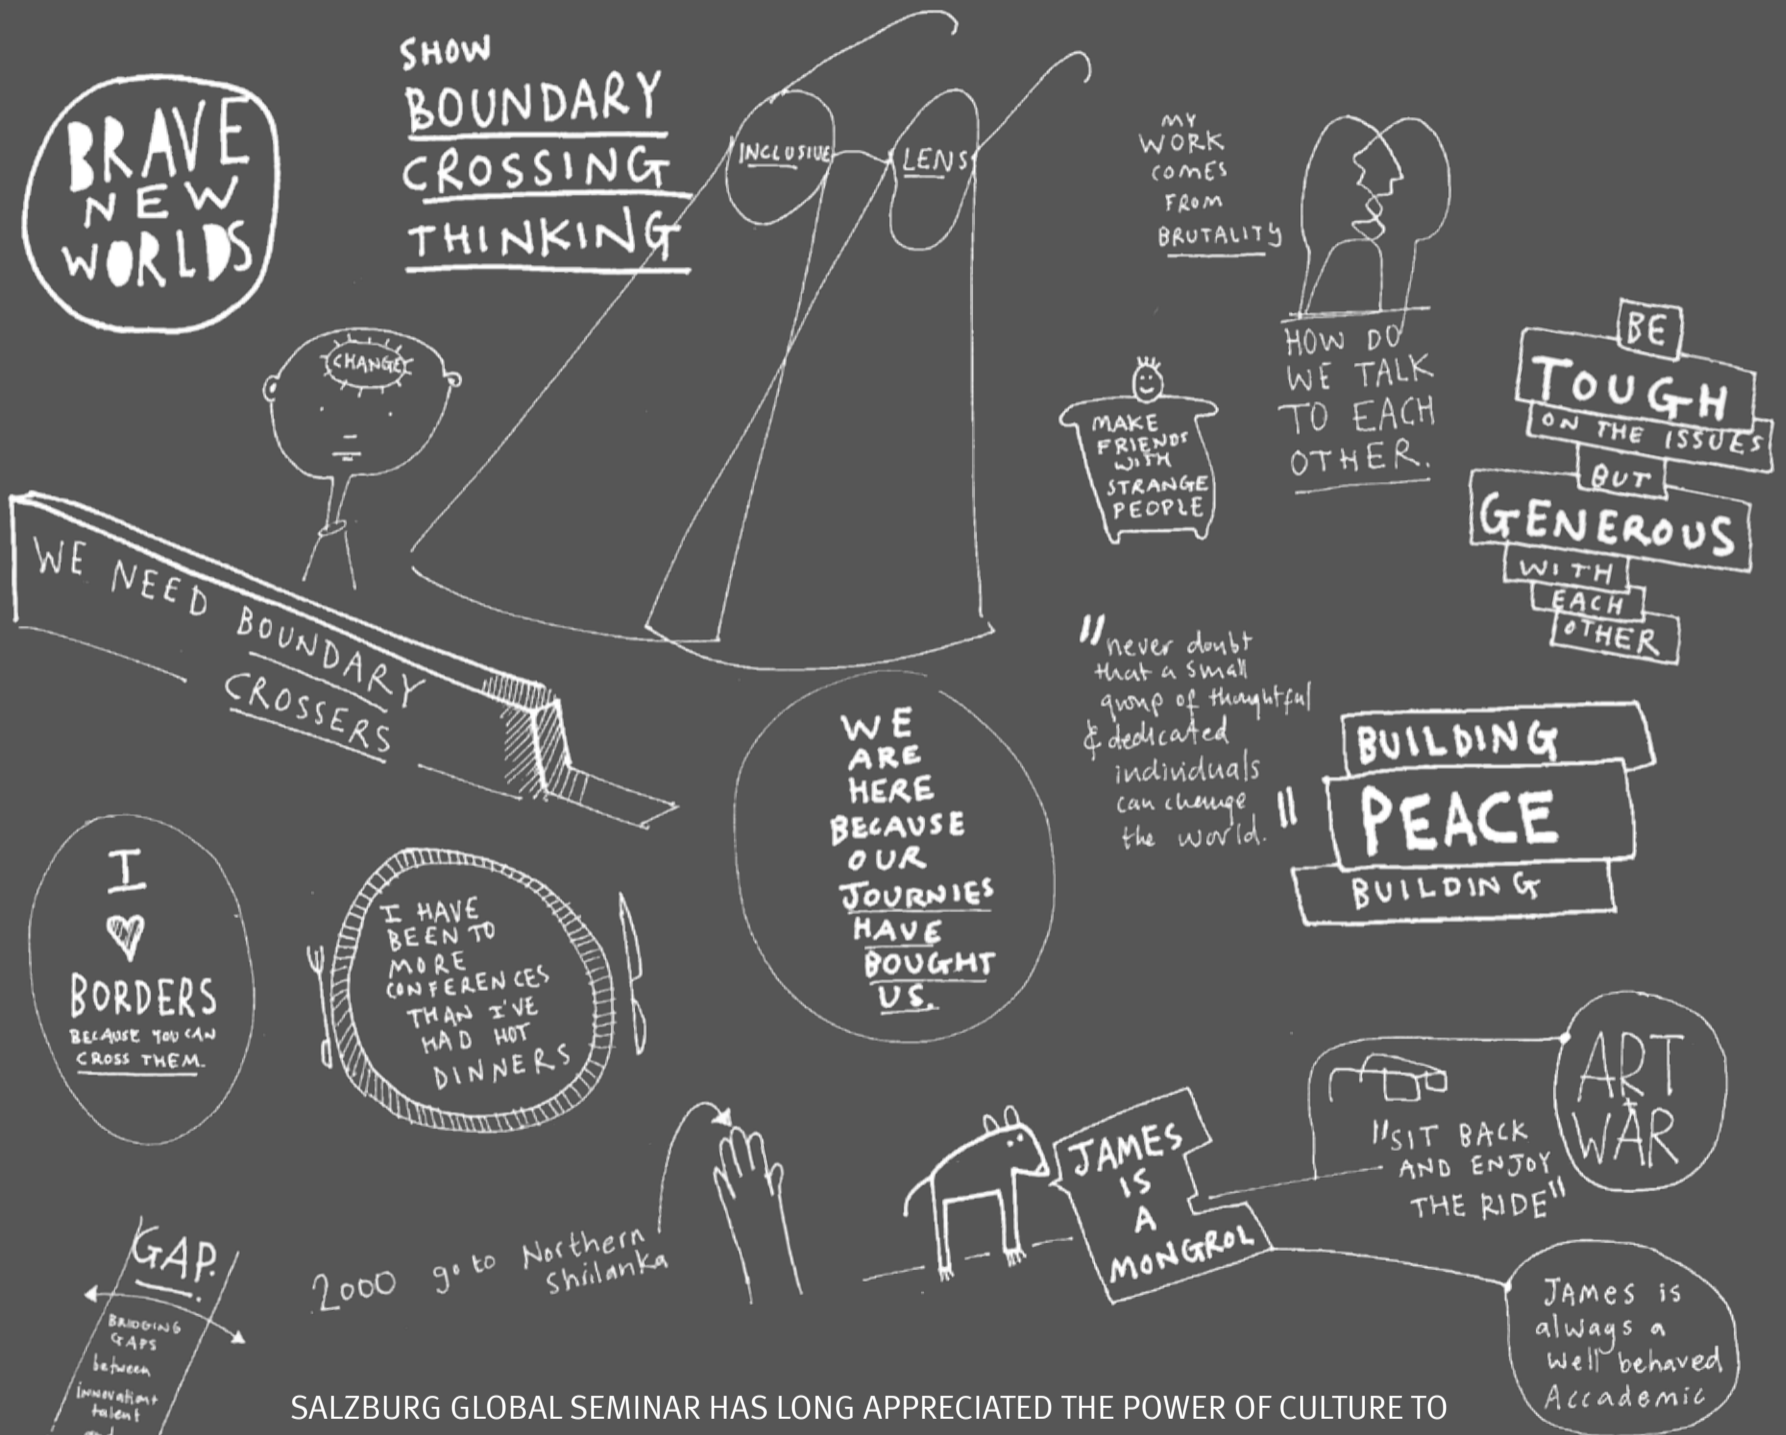 BRAVE
NEW
WORLDS
SHOW
BOUNDARY
CROSSING
THINKING
INCLUSIVE
LENS
MY
WORK
COMES
FROM
BRUTALITY
HOW DO
WE TALK
TO EACH
OTHER.
BE
TOUGH
ON THE ISSUES
BUT
GENEROUS
WITH
EACH
OTHER
CHANGE
MAKE
FRIENDS
WITH
STRANGE
PEOPLE
WE NEED BOUNDARY
CROSSERS
"never doubt
that a small
group of thoughtful
& dedicated
individuals
can change
the world."
BUILDING
PEACE
BUILDING
WE
ARE
HERE
BECAUSE
OUR
JOURNIES
HAVE
BOUGHT
US.
I
♥
BORDERS
BECAUSE YOU CAN
CROSS THEM.
I HAVE
BEEN TO
MORE
CONFERENCES
THAN I'VE
HAD HOT
DINNERS
ART
+
WAR
"SIT BACK
AND ENJOY
THE RIDE"
JAMES
IS
A
MONGROL
JAMES is
always a
well behaved
Accademic
2000 go to Northern
Shiilanka
GAP.
BRIDGING
GAPS
between
innovation+
talent
SALZBURG GLOBAL SEMINAR HAS LONG APPRECIATED THE POWER OF CULTURE TO